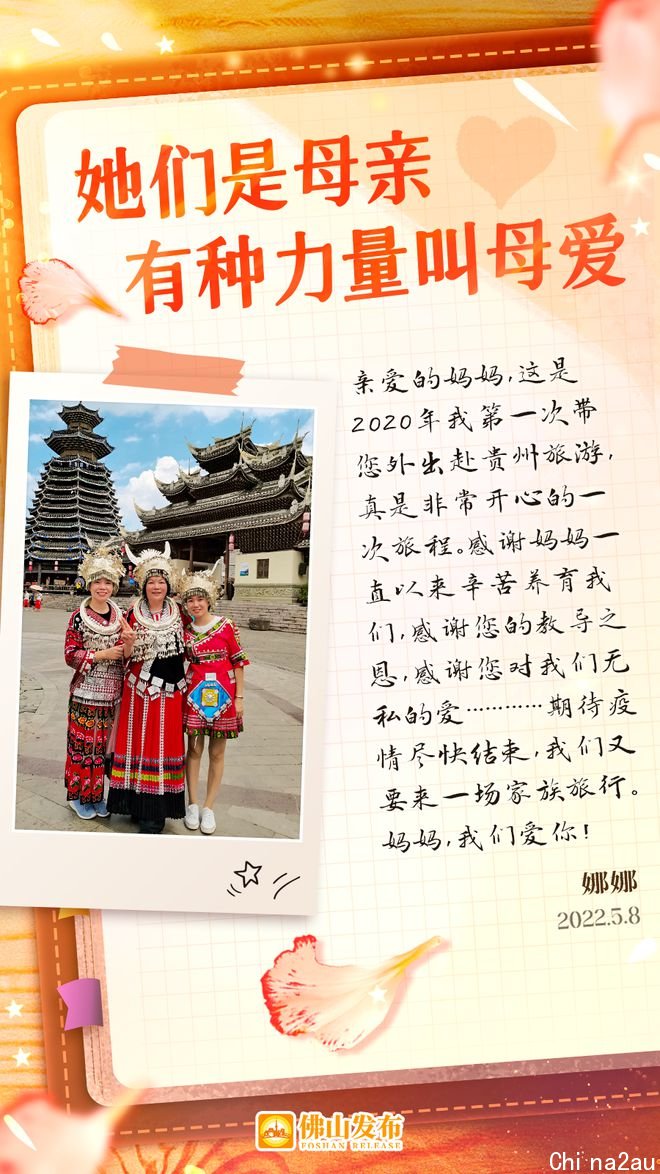 她们是母亲
有种力量叫母爱
亲爱的妈妈,这是
2020年我第一次带
您外出赴贵州旅游,
真是非常开心的一
次旅程。感谢妈妈一
直以来辛苦养育我
们,感谢您的教导之
恩,感谢您对我们无
私的爱…………期待疫
情尽快结束,我们又
要来一场家族旅行。
妈妈,我们爱你!
娜娜
2022.5.8
佛山发布
FOSHAN RELEASE
Chi na2au